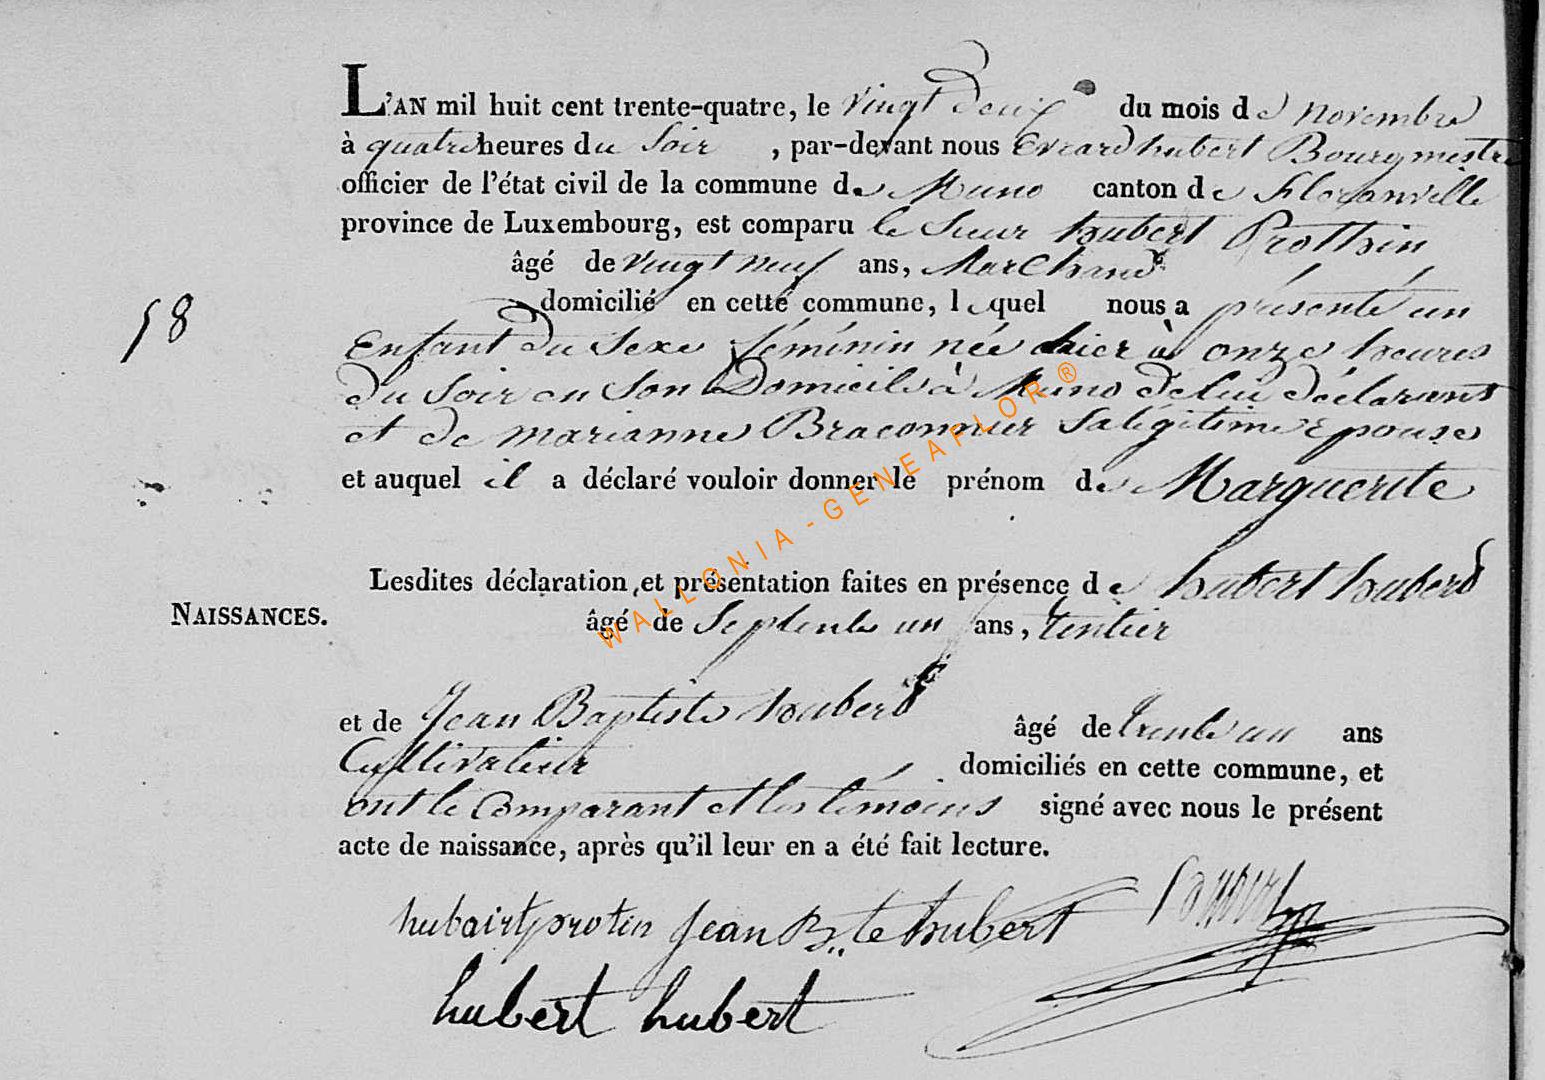 L'AN mil huit cent trente-quatre, le vingt deux du mois de novembre
à quatre heures du Soir , par-devant nous Evrard hubert Bourgmestre
officier de l'état civil de la commune de Muno canton de Florenville
province de Luxembourg, est comparu le Sieur hubert Prothin
âgé de vingt neuf ans, Marchand
domicilié en cette commune, lequel nous a présenté un
58
Enfant du Sexe féminin née hier à onze heures
du Soir en Son Domicile à Muno de lui déclarant
et de marianne Braconnier Sa légitime Epouse
et auquel il a déclaré vouloir donner le prénom de Marguerite
Lesdites déclaration et présentation faites en présence de hubert hubert
NAISSANCES.
âgé de Septente un ans, rentier
et de Jean Baptiste hubert âgé de trente un ans
Cultivateur domiciliés en cette commune, et
ont le Comparant et les témoins signé avec nous le présent
acte de naissance, après qu'il leur en a été fait lecture.
hubairt protin Jean Bte hubert
hubert hubert
WALLONIA - GENEAFLOR ®